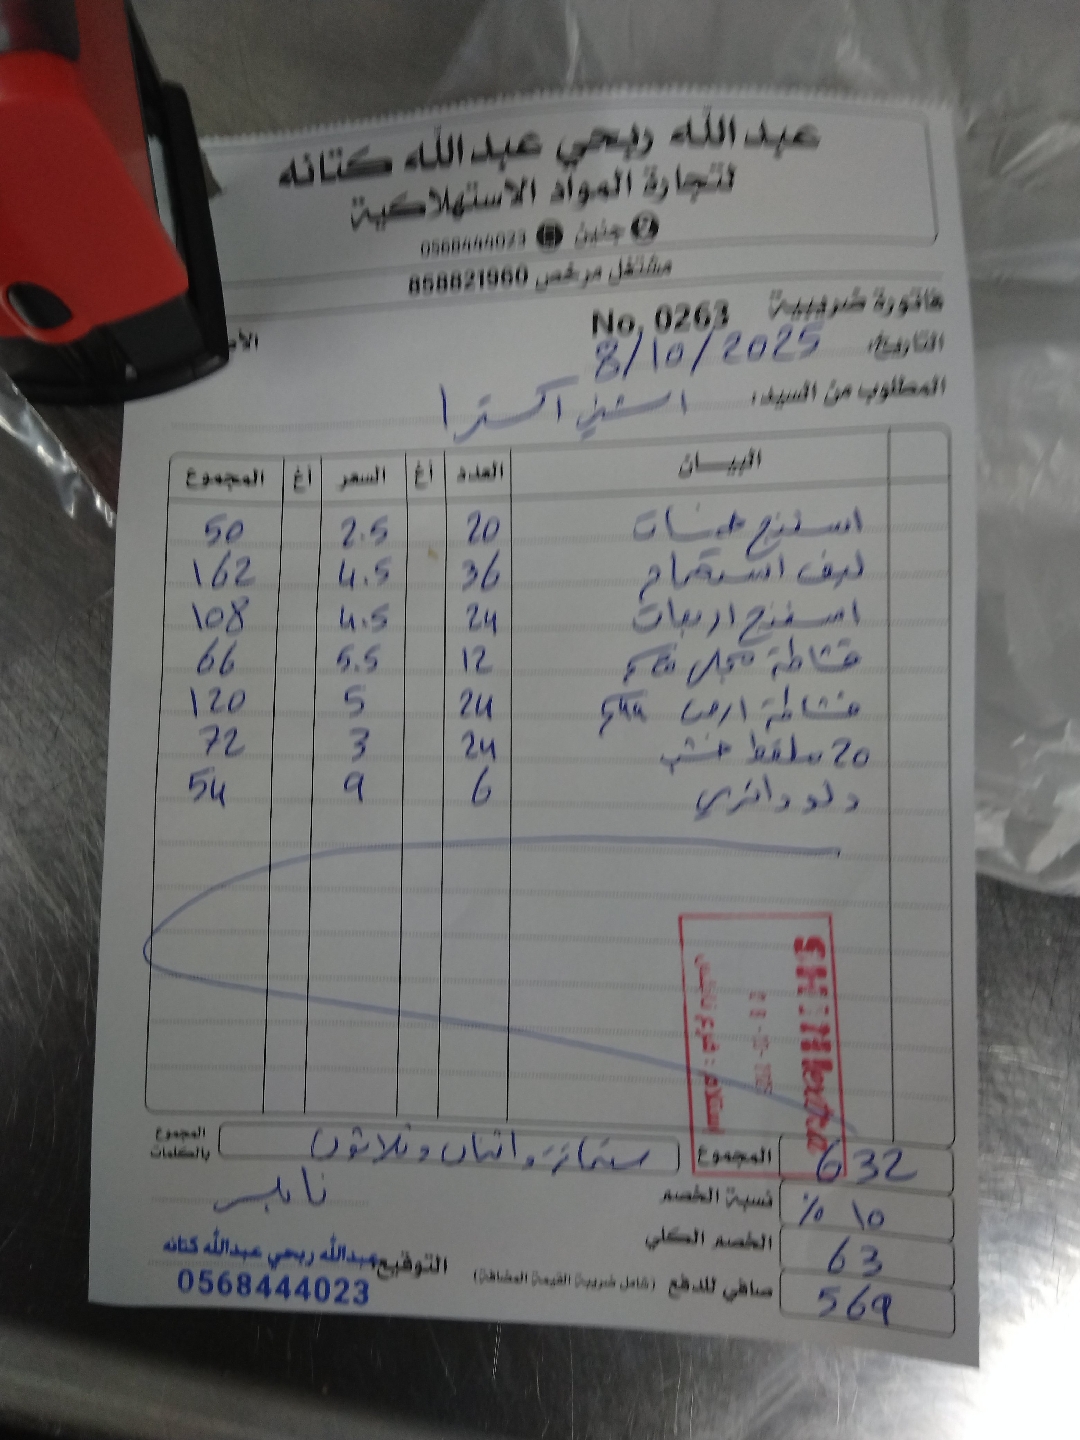 عبد الله ربحي عبد الله كتانه
لتجارة المواد الاستهلاكية
جنين 0568444023
مشتغل مرخص 858821960
فاتورة ضريبية No. 0263
التاريخ: 8/10/2025
المطلوب من السيد: الشني اكسترا
البيـــان العدد أغ السعر أغ المجموع
اسفنج خمسات 20 2.5 50
ليف استقماح 36 4.5 162
اسفنج اربعات 24 4.5 108
قشاطة مجلى 12 5.5 66
قشاطة ارض 24 5 120
20 ملقط خشب 24 3 72
دلو دائري 6 9 54
SHINIextra
استلام : فرع نابلس
المجموع 632
المجموع بالكلمات ستمائة واثنان وثلاثون
نسبة الخصم 10 %
نابلس
الخصم الكلي 63
صافي للدفع (شامل ضريبة القيمة المضافة) 569
التوقيع
عبدالله ربحي عبدالله كتانه
0568444023